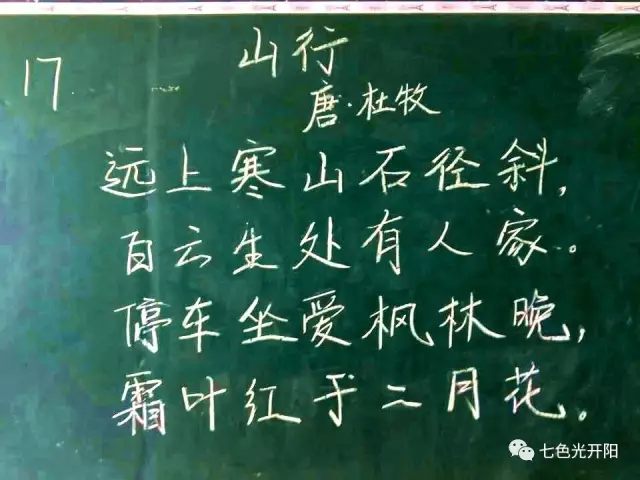 17
山行
唐·杜牧
远上寒山石径斜,
白云生处有人家。
停车坐爱枫林晚,
霜叶红于二月花。
七色光开阳